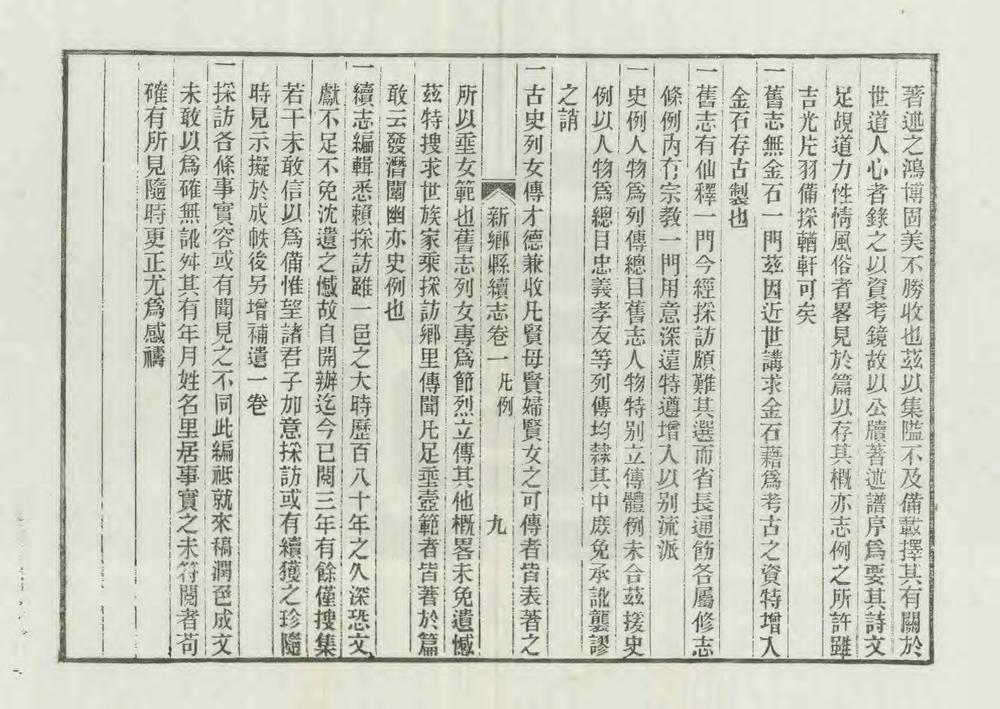 著述之鴻博固美不勝收也茲以集隘不及備載擇其有關於
世道人心者錄之以資考鏡故以公牘著述譜序爲要其詩文
足覘道力性情風俗者畧見於篇以存其概亦志例之所許雖
吉光片羽備採輶軒可矣
一舊志無金石一門茲因近世講求金石藉爲考古之資特增入
金石存古製也
一舊志有仙釋一門今經採訪頗難其選而省長通飭各屬修志
條例內有宗教一門用意深遠特遵增入以別流派
一史例人物爲列傳總目舊志人物特別立傳體例未合茲援史
例以人物爲總目忠義孝友等列傳均隸其中庶免承訛襲謬
之誚
一古史列女傳才德兼收凡賢母賢婦賢女之可傳者皆表著之
新鄉縣續志卷一 凡例 九
所以垂女範也舊志列女專爲節烈立傳其他概畧未免遺憾
茲特搜求世族家乘採訪鄉里傳聞凡足垂壼範者皆著於篇
敢云發潛闡幽亦史例也
一續志編輯悉賴採訪雖一邑之大時歷百八十年之久深恐文
獻不足不免沈遺之憾故自開辦迄今已閱三年有餘僅搜集
若干未敢信以爲備惟望諸君子加意採訪或有續獲之珍隨
時見示擬於成帙後另增補遺一卷
一採訪各條事實容或有聞見之不同此編祗就來稿潤色成文
未敢以爲確無訛舛其有年月姓名里居事實之未符閱者苟
確有所見隨時更正尤爲感禱